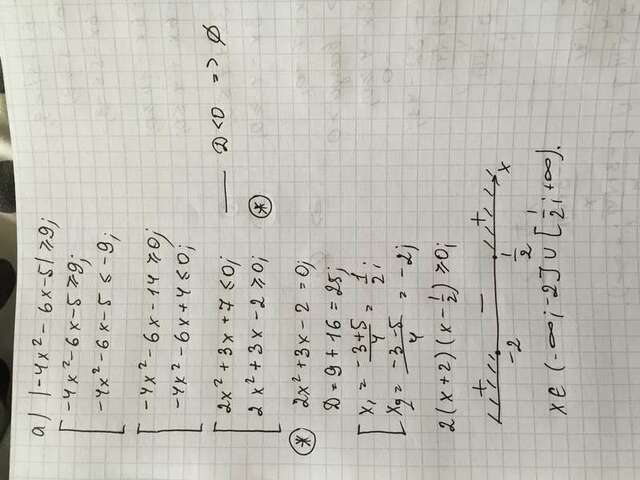 а) |-4x² - 6x - 5| ⩾ 9;
[ -4x² - 6x - 5 ⩾ 9;
-4x² - 6x - 5 ≤ -9;
[ -4x² - 6x - 14 ⩾ 0;
-4x² - 6x + 4 ≤ 0;
[ 2x² + 3x + 7 ≤ 0; — D < 0 => ∅
2x² + 3x - 2 ⩾ 0; (*)
(*) 2x² + 3x - 2 = 0;
D = 9 + 16 = 25;
[ x₁ = (-3+5)/4 = 1/2;
x₂ = (-3-5)/4 = -2;
2(x+2)(x-1/2) ⩾ 0;
+ − +
-2 1/2 x
x ∈ (-∞; -2] ∪ [1/2; +∞).